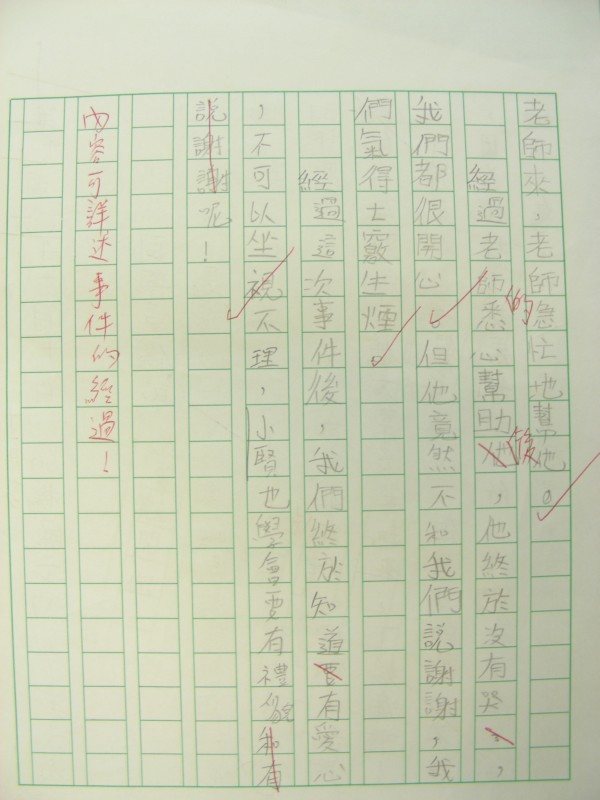 老師來，老師急忙地幫他。
經過老師的悉心幫助他後，他終於沒有哭，
我們都很開心。但他竟然不和我們說謝謝，我
們氣得七竅生煙。
經過這次事件後，我們終於知道要有愛心
，不可以坐視不理，小賢也學會要有禮貌和有
說謝謝呢！
內容可詳述事件的經過！